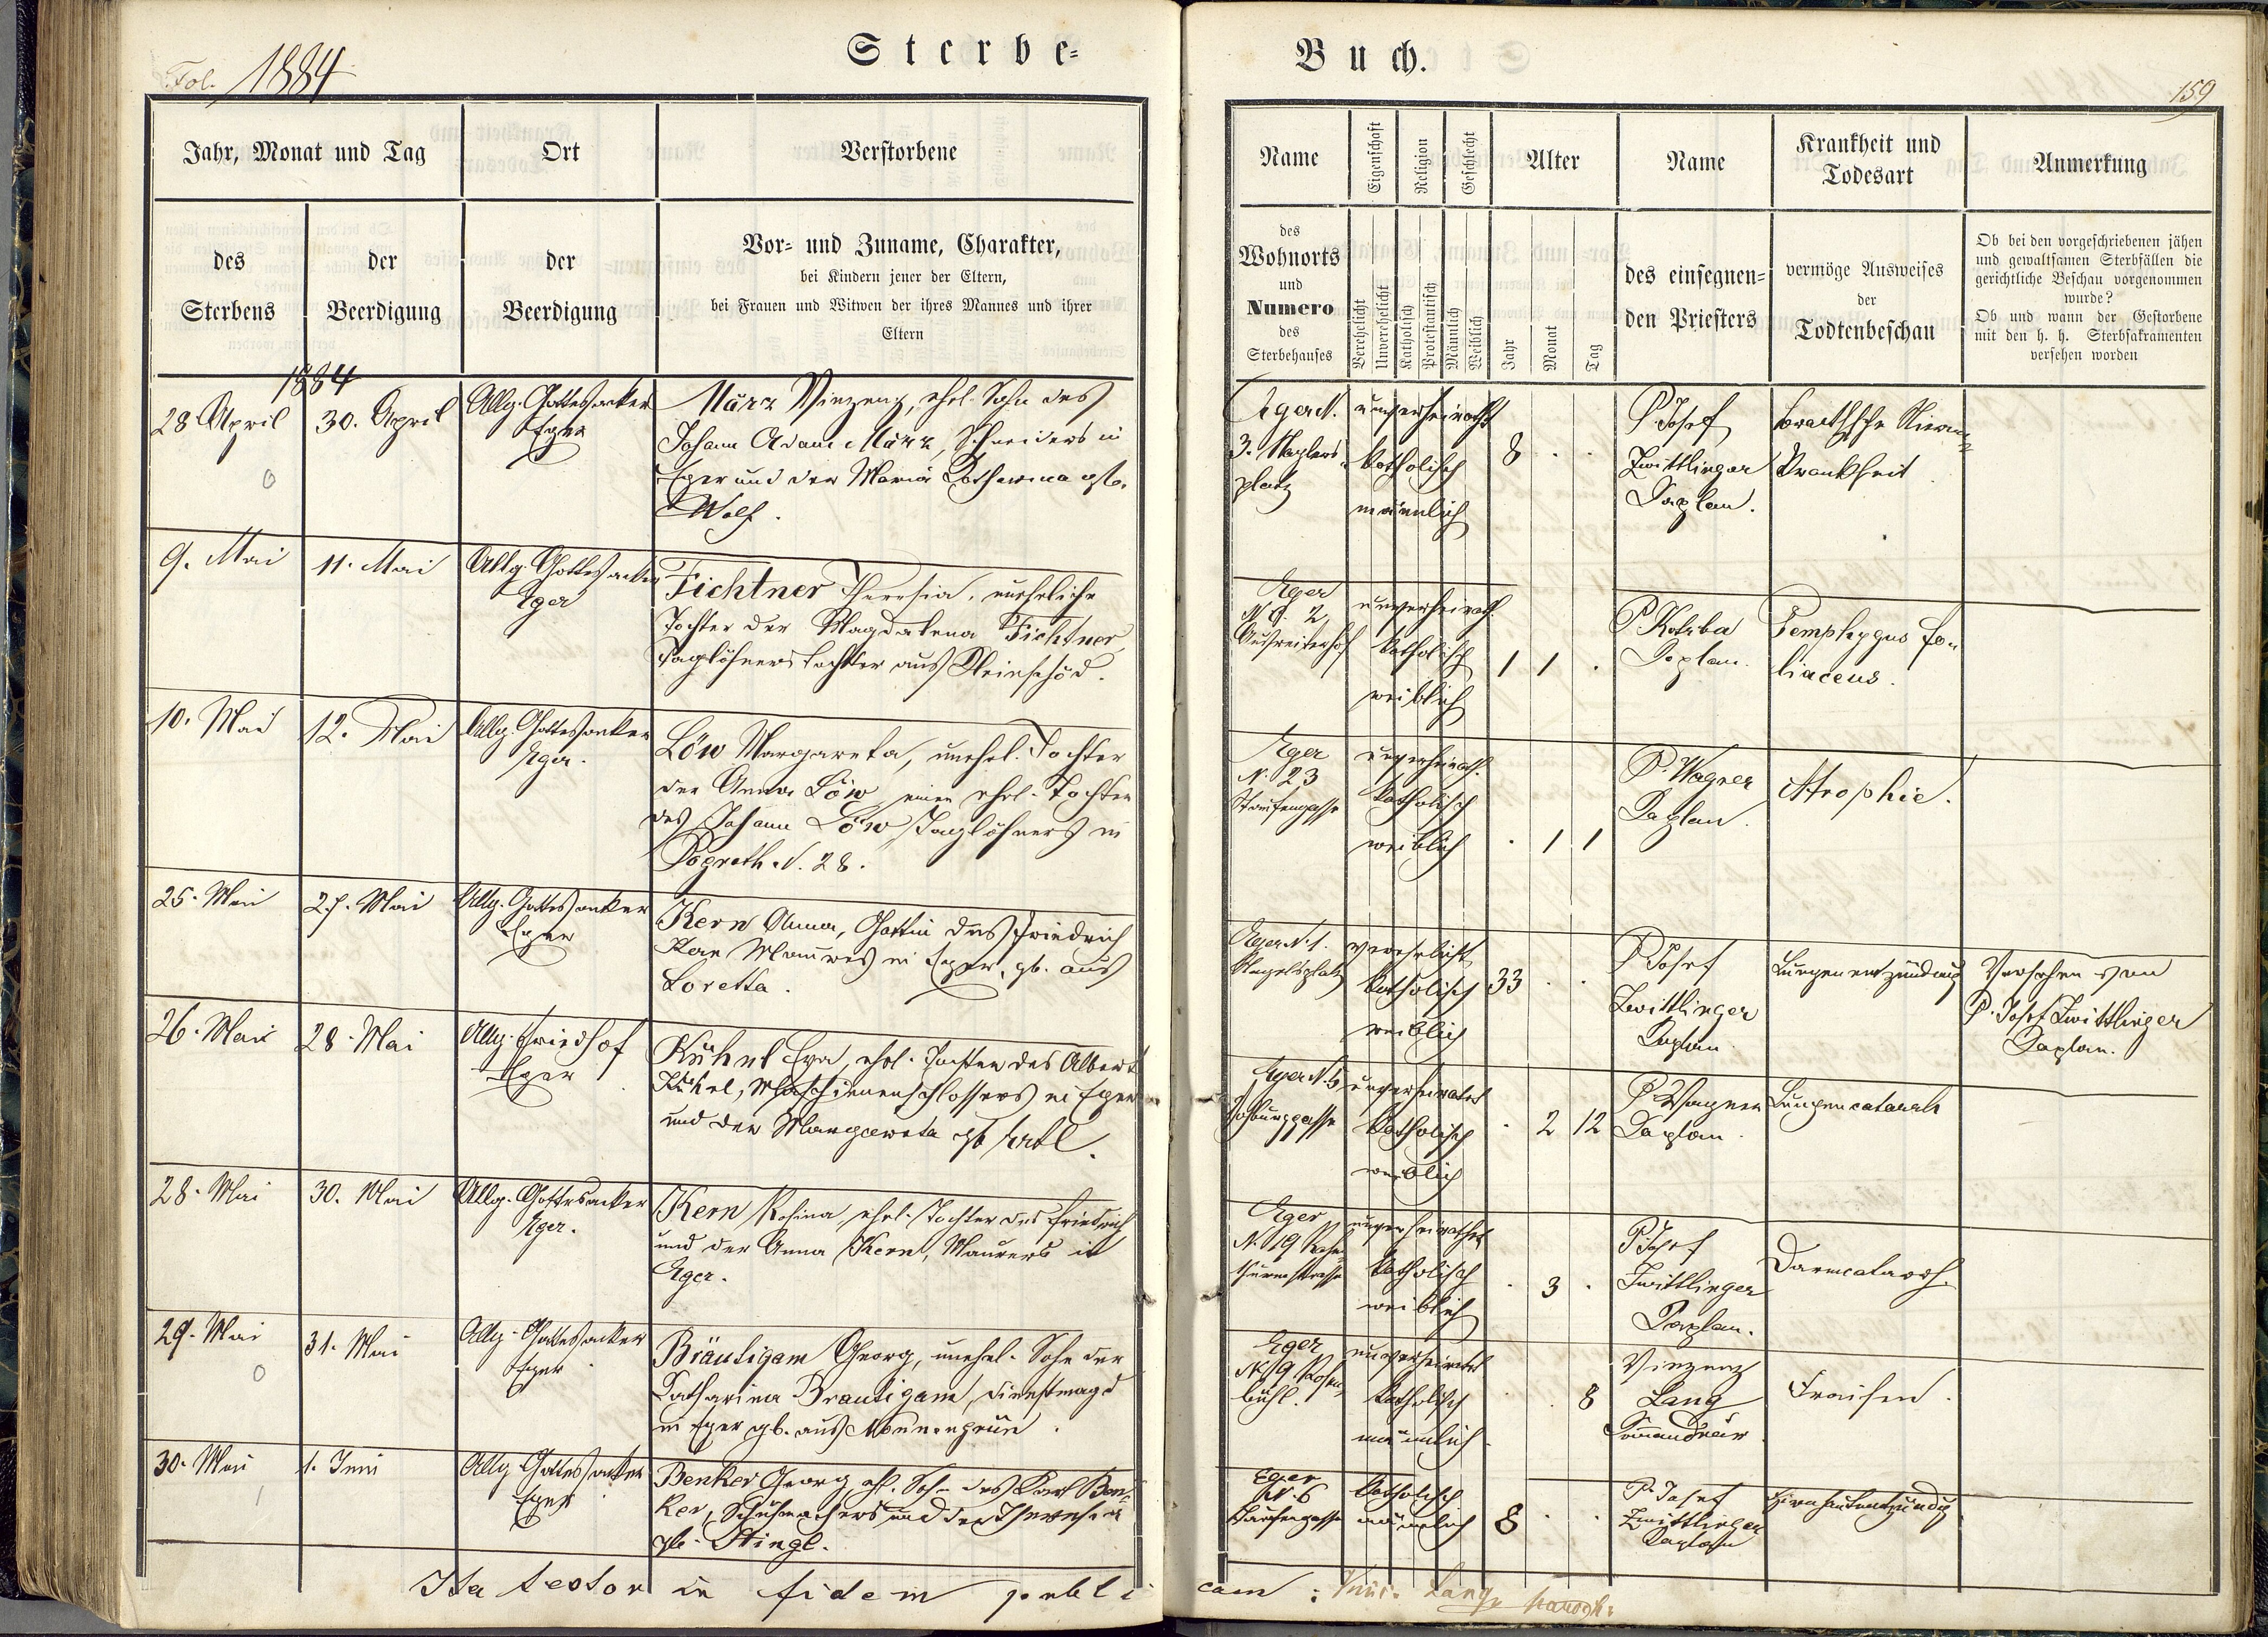 Sterbe-
Buch.
Fol. 1884
159
Jahr, Monat und Tag
Ort
Verstorbene
des
Sterbens
der
Beerdigung
der
Beerdigung
Vor- und Zuname, Charakter,
bei Kindern jener der Eltern,
bei Frauen und Witwen der ihres Mannes und ihrer
Eltern
Name
Eigenschaft
Religion
Geschlecht
Alter
Name
Krankheit und
Todesart
Anmerkung
des
Wohnorts
und
Numero
des
Sterbehauses
Verehelicht
Unverehelicht
Katholisch
Protestantisch
Männlich
Weiblich
Jahr
Monat
Tag
des einsegnen-
den Priesters
vermöge Ausweises
der
Todtenbeschau
Ob bei den vorgeschriebenen jähen
und gewaltsamen Sterbfällen die
gerichtliche Beschau vorgenommen
wurde?
Ob und wann der Gestorbene
mit den h. h. Sterbsakramenten
versehen worden
1884
28 April
30. April
Allg. Gottesacker
Eger
März Vinzenz, ehel. Sohn des
Johann Adam März, Schneiders in
Eger und der Maria Katharina geb.
Wolf.
Eger N.
3.
platz
unverheirathet
katholisch
männlich
8
P Josef
Zwittlinger
Kaplan.
Krankheit
9. Mai
11. Mai
Allg. Gottesacker
Eger
Fichtner Theresia, uneheliche
Tochter der Magdalena Fichtner
Taglöhnerstochter aus Kleinschüd.
Eger
N. 2
unverheirath.
katholisch
weiblich
1 1
P Kotrba
Kaplan.
Pemphygus fo-
liaceus.
10. Mai
12. Mai
Allg. Gottesacker
Eger.
Löw Margareta, unehel. Tochter
der Anna Löw, einer ehel. Tochter
des Johann Löw Taglöhners in
Pograth N. 28.
Eger
N. 23
unverheirath.
katholisch
weiblich
1 1
P. Wagner
Kaplan.
Atrophie.
25. Mai
27. Mai
Allg. Gottesacker
Eger
Kern Anna, Gattin des Friedrich
Kern Maurers in Eger, gb. aus
Loretta.
Eger N. 1.
verehelicht
katholisch
weiblich
33
P Josef
Zwittlinger
Kaplan
Lungenentzündung
Versehen von
P. Josef Zwittlinger
Kaplan.
26. Mai
28. Mai
Allg. Friedhof
Eger
Kühnl Eva, ehel. Tochter des Albert
Kühnl, Maschinenschlossers in Eger
und der Margareta gb Ertl.
Eger N. 5
unverheirathet
katholisch
weiblich
2 12
P. Wagner
Kaplan.
Lungencatarrh
28. Mai
30. Mai
Allg. Gottesacker
Eger.
Kern Rosina, ehel. Tochter des Friedrich
und der Anna Kern, Maurers in
Eger.
Eger
N. 19
unverheirathet
katholisch
weiblich
3
P Josef
Zwittlinger
Kaplan.
Darmcatarrh.
29. Mai
31. Mai
Allg. Gottesacker
Eger
Bräutigam Georg, unehel. Sohn der
Katharina Bräutigam, Dienstmagd
in Eger gb. aus Nonnengrün.
Eger
N. 9 Rosen-
bühl.
unverheirathet
katholisch
männlich
8
Vinzenz
Lang
Fraisen.
30. Mai
1. Juni
Allg. Gottesacker
Eger
Benker Georg, ehl. Sohn des Karl Ben-
ker, Schuhmachers und der Theresia
gb. Stingl.
Eger
N. 6
katholisch
männlich
8
P. Josef
Zwittlinger
Kaplan
Hirnhautentzündg
Ita testor in fidem publi
cam: Vinc. Lang paroch.